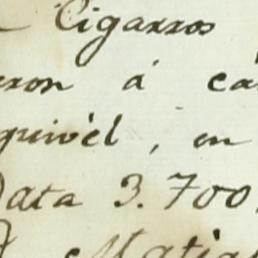 Cigarros
eron á ca
quivèl, en
Data 3.700
Matia